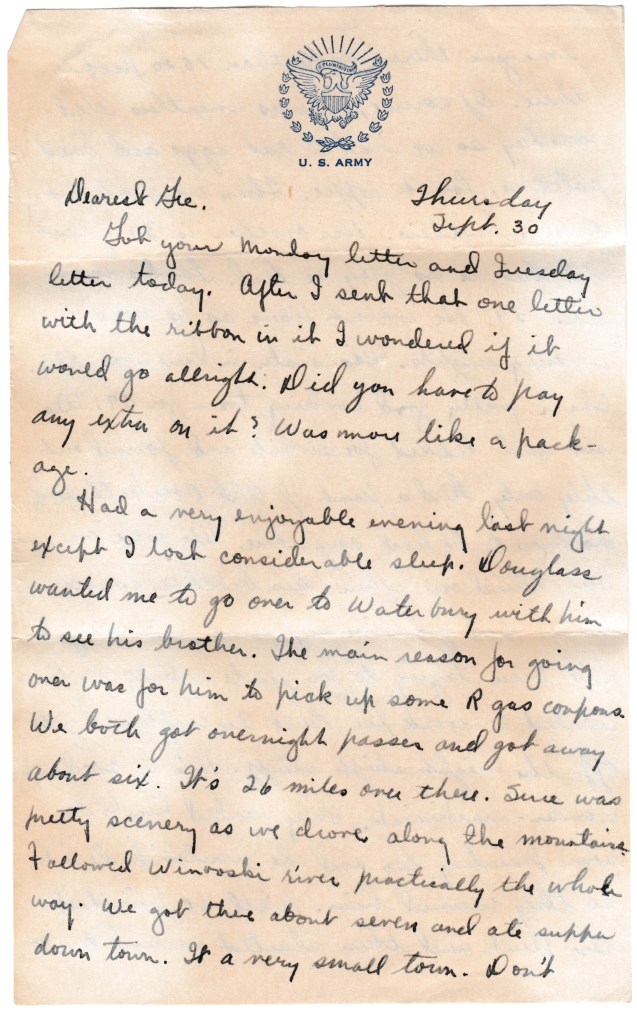 E PLURIBUS UNUM
U. S. ARMY
Dearest Gee.
Thursday
Sept. 30
Got your Monday letter and Tuesday
letter today. After I sent that one letter
with the ribbon in it I wondered if it
would go allright. Did you have to pay
any extra on it? Was more like a pack-
age.
Had a very enjoyable evening last night
except I lost considerable sleep. Douglass
wanted me to go over to Waterbury with him
to see his brother. The main reason for going
over was for him to pick up some R gas coupons.
We both got overnight passes and got away
about six. It's 26 miles over there. Sure was
pretty scenery as we drove along the mountains.
Followed Winooski river practically the whole
way. We got there about seven and ate supper
down town. It a very small town. Don't